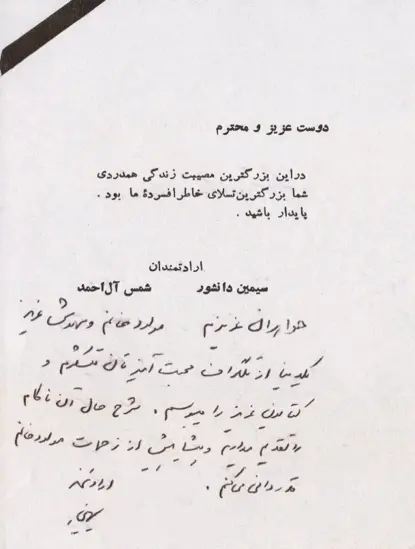 دوست عزیز و محترم
دراین بزرگترین مصیبت زندگی همدردی
شما بزرگترین تسلای خاطرافسردهٔ ما بود .
پایدار باشید .
ارادتمندان
سیمین دانشور شمس آل‌احمد
خواهران عزیزم مولود خانم و عزیز
یک دنیا از تلگراف محبت آمیزتان متشکرم و
عزیز را میبوسم . شرح حال آن ناکام
را تقدیم میدارم و از زحمات مولود خانم
قدردانی میکنم .
ارادتمند